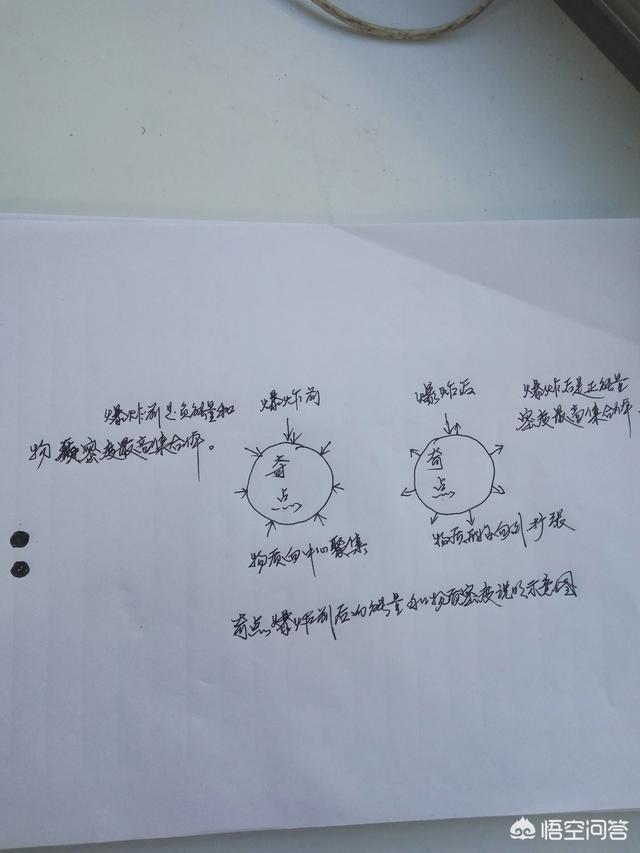 爆炸前是负能量和
物 密度最高集合体。
爆炸前
奇
点
物质向中心聚集
爆炸后
奇
点
物质 向外扩张
爆炸后是正能量
密度最高集合体。
奇点爆炸前后的能量和物质密度说明示意图
悟空问答